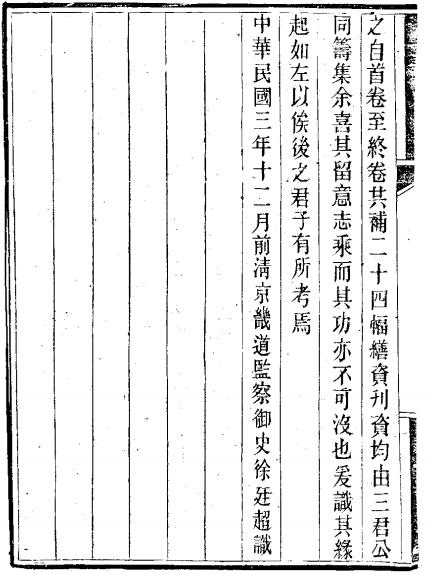 之自首卷至終卷共補二十四幅繕資刊資均由三君公
同籌集余喜其留意志乘而其功亦不可沒也爰識其緣
起如左以俟後之君子有所考焉
中華民國三年十二月前淸京畿道監察御史徐廷超識